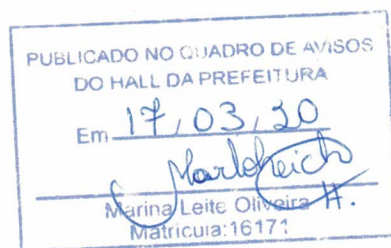 PUBLICADO NO QUADRO DE AVISOS
DO HALL DA PREFEITURA
Em 17, 03, 20
Marina Leite Oliveira H.
Matricula:16171